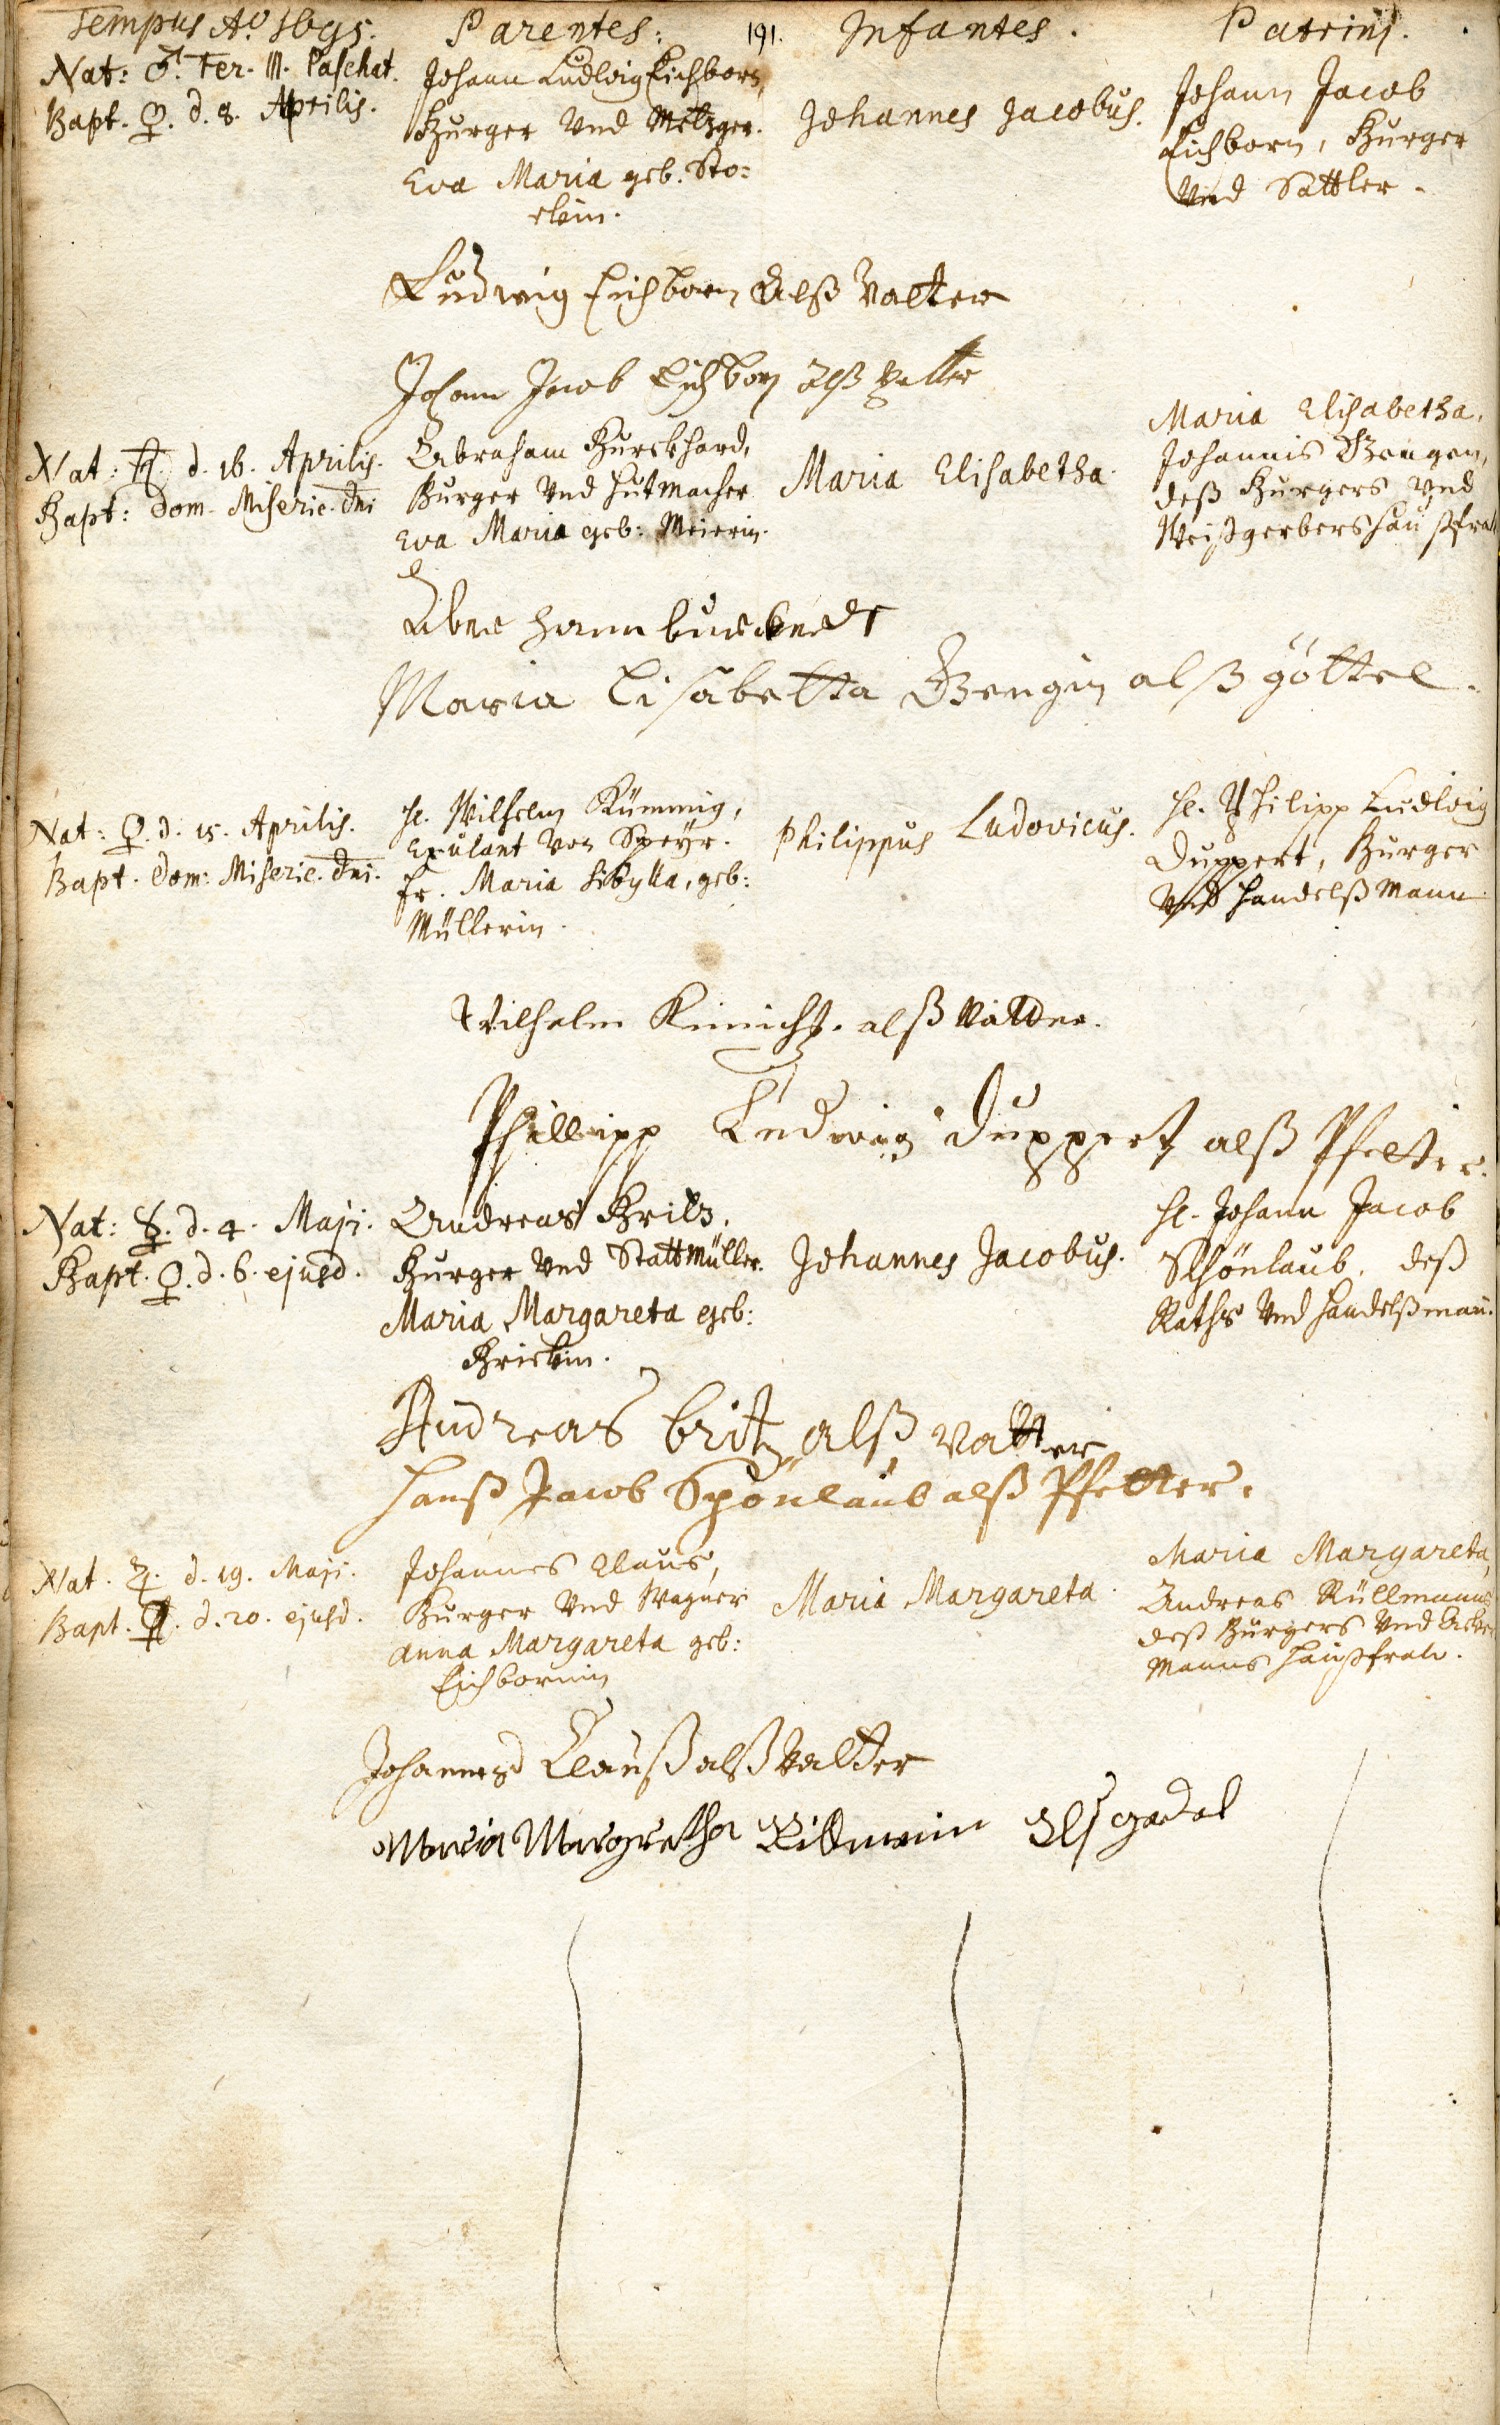 Tempus Aº. 1695. Parentes: 191. Infantes. Patrinj.
Nat: ♂. Fer. III. Paschat.
Bapt. ♀. d. 8. Aprilis.
Johann Ludwig Eichborn,
Burger Vnd Metzger.
Eva Maria geb. Sto=
Johannes Jacobus.
Johann Jacob
Eichborn, Burger
Vnd Sattler.
Ludwig Eichborn Alß Vatter
Johann Jacob Eichborn Alß Petter
Nat: ♄. d. 16. Aprilis.
Bapt: Dom. Miseric. Dni
Abraham Burckhard,
Burger Vnd Hutmacher
Eva Maria geb: Meierin.
Maria Elisabetha.
Maria Elisabetha,
Johannis Gengen,
deß Burgers Vnd
Weißgerbers Haußfrau
Maria Lisabetta Gengin alß göttel.
Nat: ♀. d. 15. Aprilis.
Bapt. Dom: Miseric. Dni.
H. Wilhelm Kümmig,
Exulant Von Speyr.
Fr. Maria Sibylla, geb:
Müllerin.
Philippus Ludovicus.
H. Philipp Ludwig
Duppert, Burger
Vnd Handelß Mann
Wilhelm Kimich. alß Vatder.
Phillipp Ludwig Duppert alß Pfetter.
Nat: ☿. d. 4. Maji.
Bapt. ♀. d. 6. ejusd.
Andreas Britz,
Burger Vnd Stattmüller.
Maria Margareta geb:
Brickin.
Johannes Jacobus.
H. Johann Jacob
Schönlaub, deß
Raths Vnd Handelßman.
Andreas Britz alß Vatter
Hanß Jacob Schönlaub alß Pfetter.
Nat. ♃. d. 19. Maji.
Bapt. ♀. d. 20. ejusd.
Johannes Claus,
Burger Vnd Wagner
Anna Margareta geb:
Eichbornin
Maria Margareta.
Maria Margareta,
Andreas Küllmanns
deß Burgers Vnd Acker
Manns Haußfrau.
Johannes Clauß alß Vatter
Maria Margretha